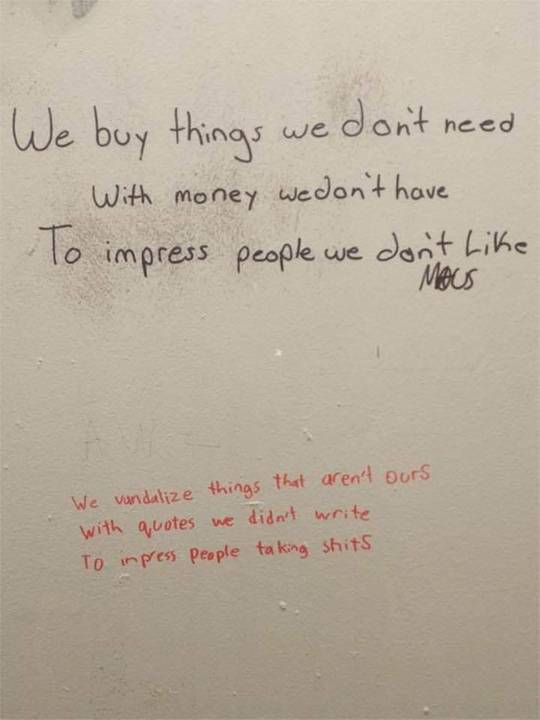 We buy things we don't need
With money we don't have
To impress people we don't Like
We vandalize things that aren't ours
with quotes we didn't write
To impress people taking shits